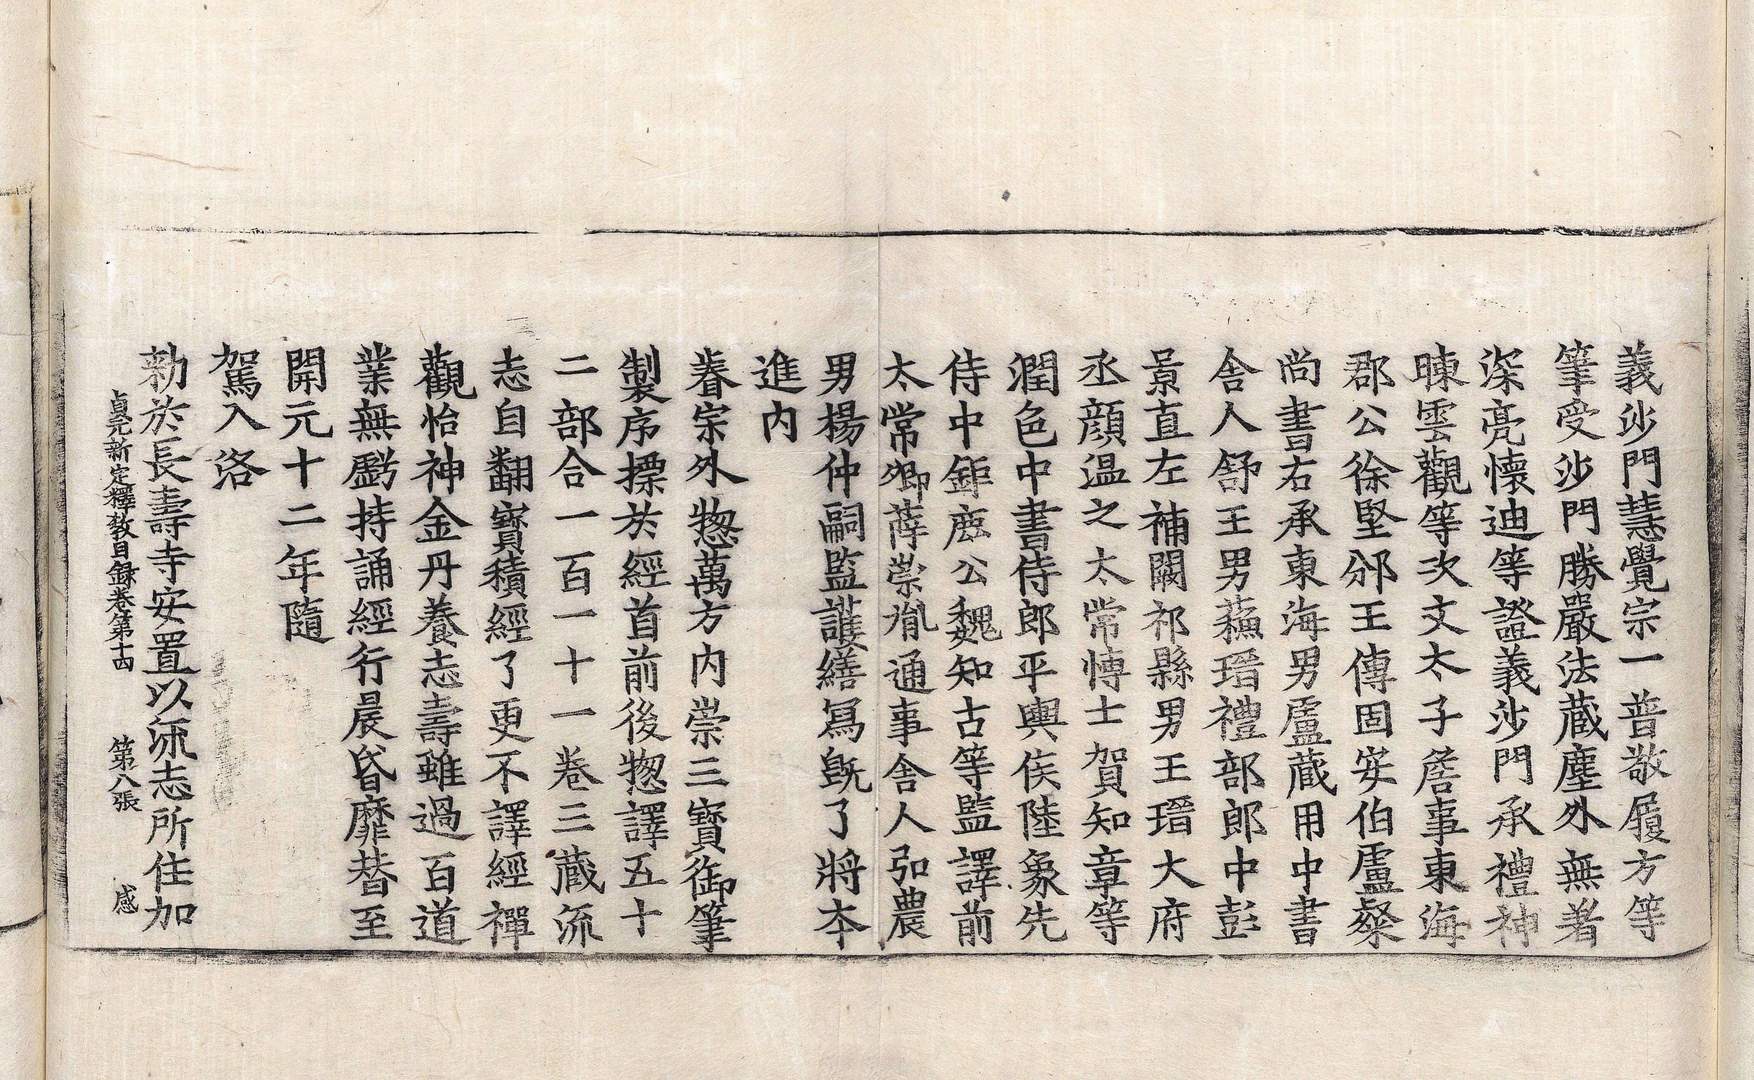 義沙門慧覺宗一普敬履方等
筆受沙門勝嚴法藏塵外無著
深亮懷迪等證義沙門承禮神
暕雲觀等次文太子詹事東海
郡公徐堅邠王傳固安伯盧粲
尚書右丞東海男盧藏用中書
舍人舒王男蘓瑨禮部郎中彭
景直左補闕祁縣男王瑨大府
丞顔温之太常愽士賀知章等
潤色中書侍郎平輿侯陸象先
侍中鉅鹿公魏知古等監譯前
太常卿薛崇胤通事舍人弘農
男楊仲嗣監護繕寫旣了將本
進内
睿宗外惣萬方内崇三寶御筆
製序摽於經首前後惣譯五十
二部合一百一十一卷三藏流
志自翻寶積經了更不譯經禪
觀怡神金丹養志壽雖過百道
業無虧持誦經行晨昏靡替至
開元十二年隨
駕入洛
勑於長壽寺安置以流志所住加
貞元新定釋敎目録卷第十四 第八張 感